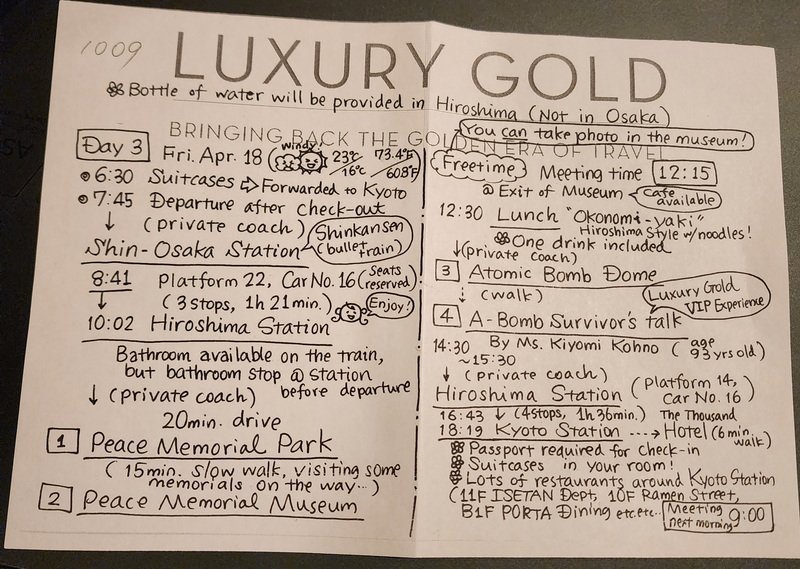 1009
LUXURY GOLD
Bottle of water will be provided in Hiroshima (Not in Osaka)
BRINGING BACK THE GOLDEN ERA OF TRAVEL
Day 3 Fri. Apr. 18 windy! 23℃/16℃ 73.4°F/60.8°F
6:30 Suitcases ⇨ Forwarded to Kyoto
7:45 Departure after check-out
↓ (private coach)
Shinkansen (bullet train)
Shin-Osaka Station
8:41 Platform 22, Car No. 16 (Seats reserved)
↓ (3 stops, 1h 21min.) Enjoy!
10:02 Hiroshima Station
Bathroom available on the train,
but bathroom stop @ station
before departure
↓ (private coach)
20min. drive
1 Peace Memorial Park
(15min. slow walk, visiting some
memorials on the way...)
2 Peace Memorial Museum
You can take photo in the museum!
Freetime Meeting time 12:15
@ Exit of Museum Cafe available
12:30 Lunch "Okonomi-yaki"
Hiroshima Style w/noodles!
One drink included
↓ (private coach)
3 Atomic Bomb Dome
↓ (walk)
Luxury Gold VIP Experience
4 A-Bomb Survivor's talk
14:30 ~15:30 By Ms. Kiyomi Kohno (age 93 yrs old)
↓ (private coach)
Hiroshima Station (Platform 14, Car No. 16)
16:43 ↓ (4stops, 1h 36min.) The Thousand
18:19 Kyoto Station ---→ Hotel (6 min. walk)
Passport required for check-in
Suitcases in your room!
Lots of restaurants around Kyoto Station
(11F ISETAN Dept, 10F Ramen Street,
B1F PORTA Dining etc.etc..
Meeting next morning 9:00